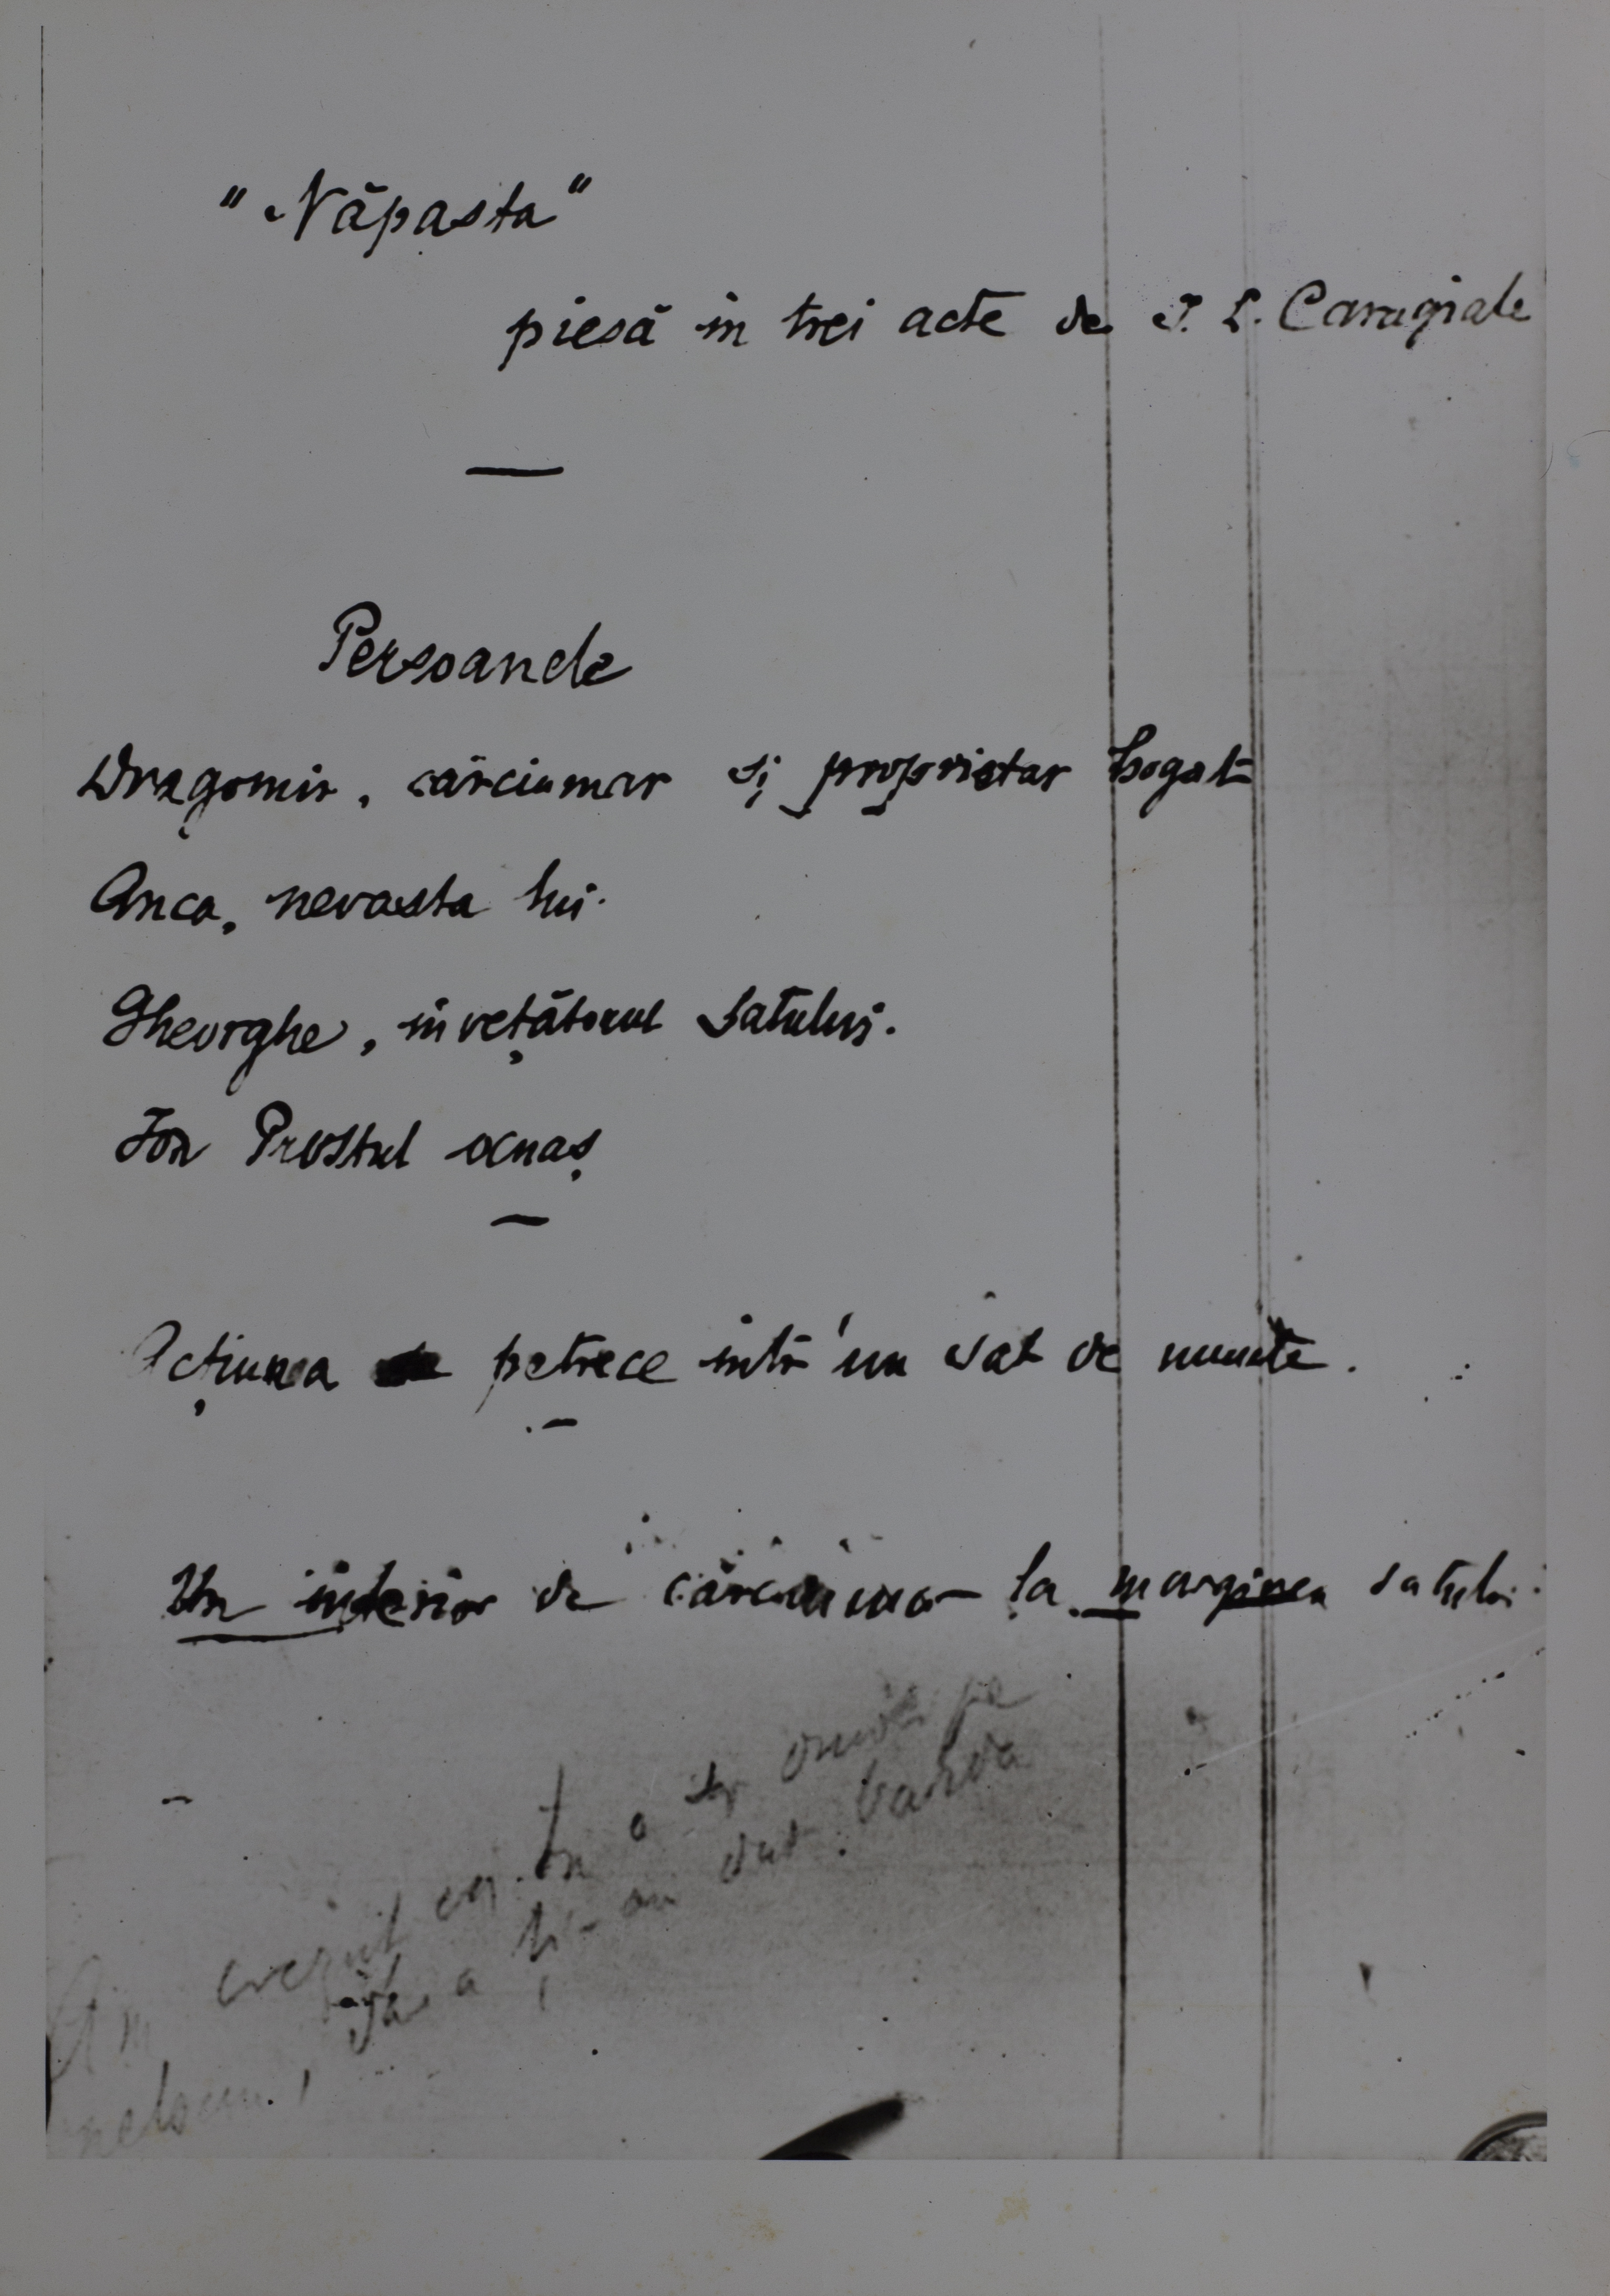 "Năpasta"
piesă in trei acte de I. L. Caragiale
Persoanele
Dragomir, cârciumar și proprietar bogat
Anca, nevasta lui.
Gheorghe, învețătorul satului.
Ion Prostul ocnaș
Acțiunea se petrece intr'un sat de munte.
Un interior de cârciumă la marginea satului.
Am crezut că
ți-au dat